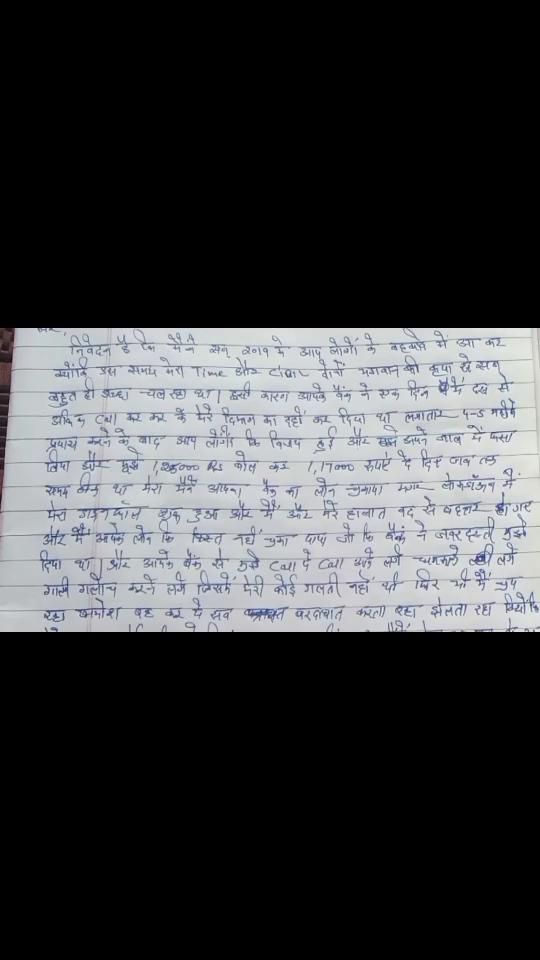 निवेदन है कि मैने सन् 2019 मे आप लोगों के बहकावे में आ कर
क्योंकि उस समय मेरा Time और दोनों भगवान की कृपा से सब
बहुत ही अच्छा चल रहा था। इसी कारण आपके बैंक ने एक दिन में दस से
अधिक Call कर कर के मेरे दिमाग का दही कर दिया था लगातार 4-5 महीने
प्रयास करने के बाद आप लोगों कि विजय हुई और अपने जाल में फसा
लिया और मुझे 1,25000 RS बोल कर 1,17000 रुपये दे दिए जब तक
समय ठीक था मेरा मैंने आपका बैंक का लोन चुकाया मगर लोकडाउन में
मेरा शुरू हुआ और में और मेरे हालात बद से बद्तर हो गए
और मैं आपके लोन कि किस्त नहीं चुका पाया जो कि बैंक ने जबरदस्ती मुझे
दिया था और आपके बैंक से मुझे Call पे Call आने लगे धमकाने लगे
गाली गलोच करने लगे जिसमें मेरी कोई गलती नहीं थी फिर भी मैं चुप
रहा खामोश रह कर ये सब बरदाशत करता रहा झेलता रहा